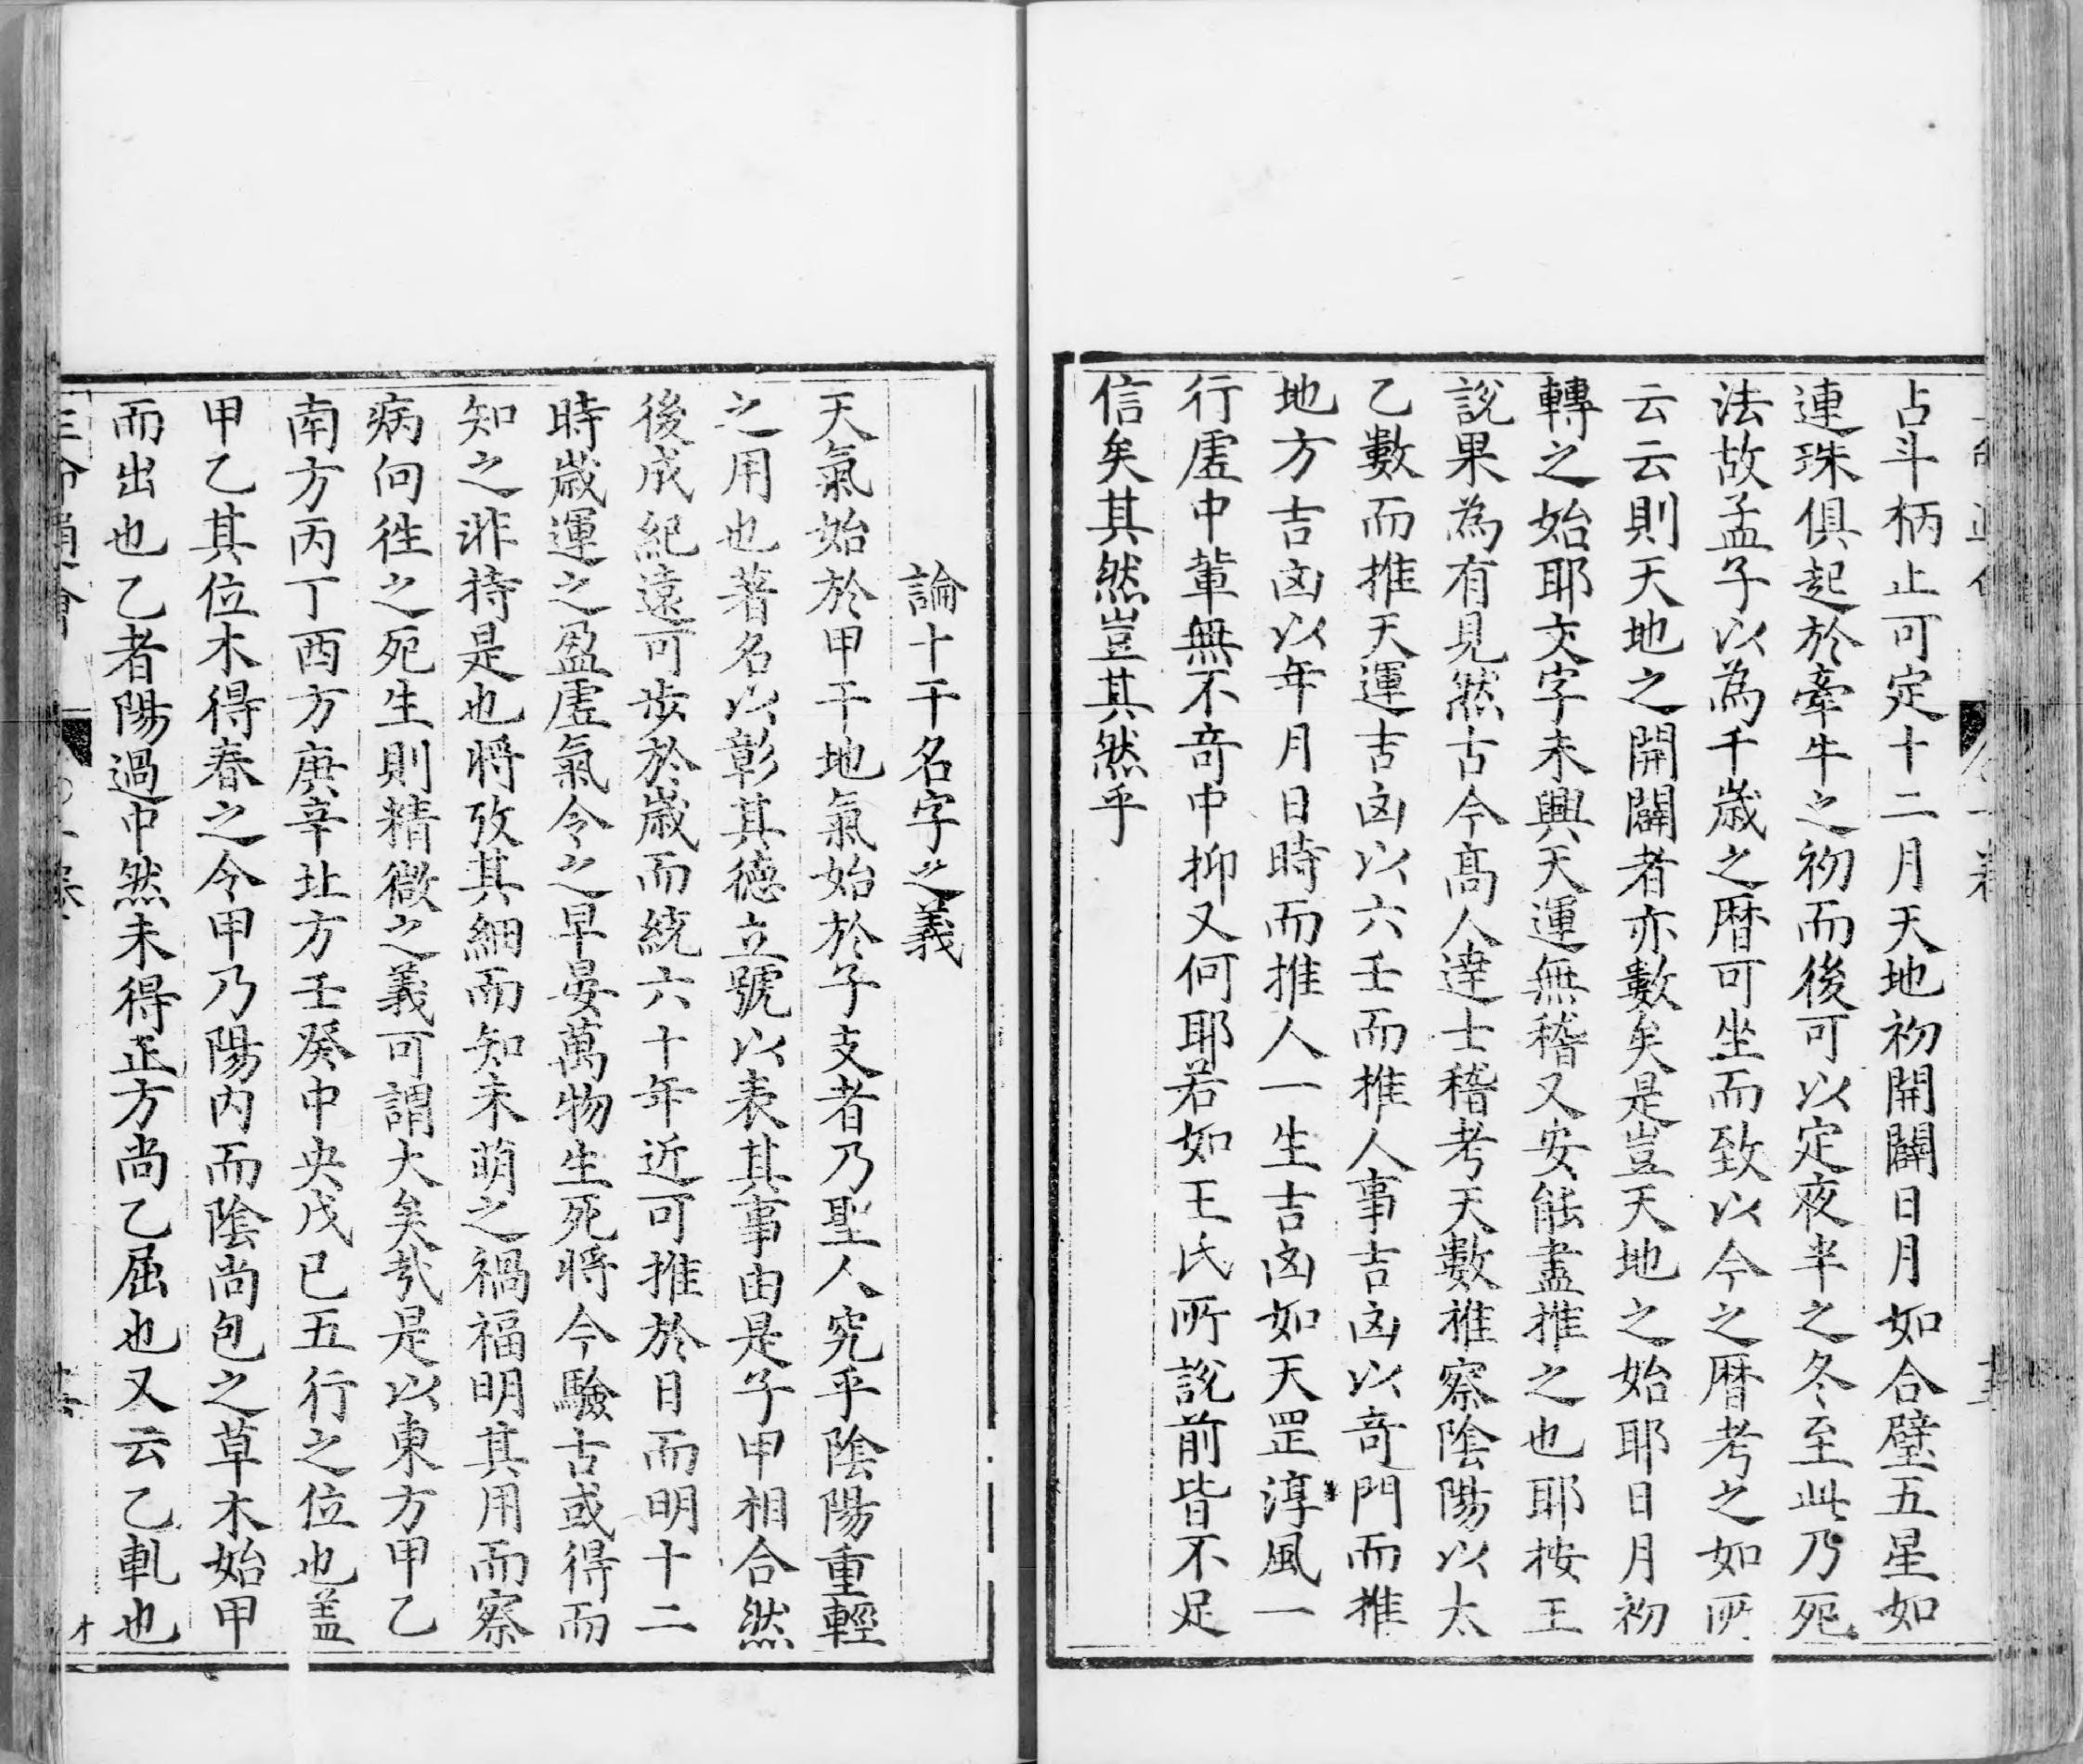 占斗柄止可定十二月天地初開闢日月如合璧五星如
連珠俱起於牽牛之初而後可以定夜半之冬至此乃死
法故孟子以為千歲之曆可坐而致以今之曆考之如所
云云則天地之開闢者亦數矣是豈天地之始耶日月初
轉之始耶文字未興天運無稽又安能盡推之也耶按王
說果為有見然古今高人達士稽考天數推察陰陽以太
乙數而推天運吉凶以六壬而推人事吉凶以奇門而推
地方吉凶以年月日時而推人一生吉凶如天罡淳風一
行虛中輩無不奇中抑又何耶若如王氏所說前皆不足
信矣其然豈其然乎
論十干名字之義
天氣始於甲干地氣始於子支者乃聖人究乎陰陽重輕
之用也著名以彰其德立號以表其事由是子甲相合然
後成紀遠可步於歲而統六十年近可推於日而明十二
時歲運之盈虛氣令之早晏萬物生死將今驗古或得而
知之非特是也將攷其細而知未萌之禍福明其用而察
病向徃之死生則精微之義可謂大矣哉是以東方甲乙
南方丙丁酉方庚辛北方壬癸中央戊己五行之位也盖
甲乙其位木得春之令甲乃陽內而陰尚包之草木始甲
而出也乙者陽過中然未得正方尚乙屈也又云乙軋也